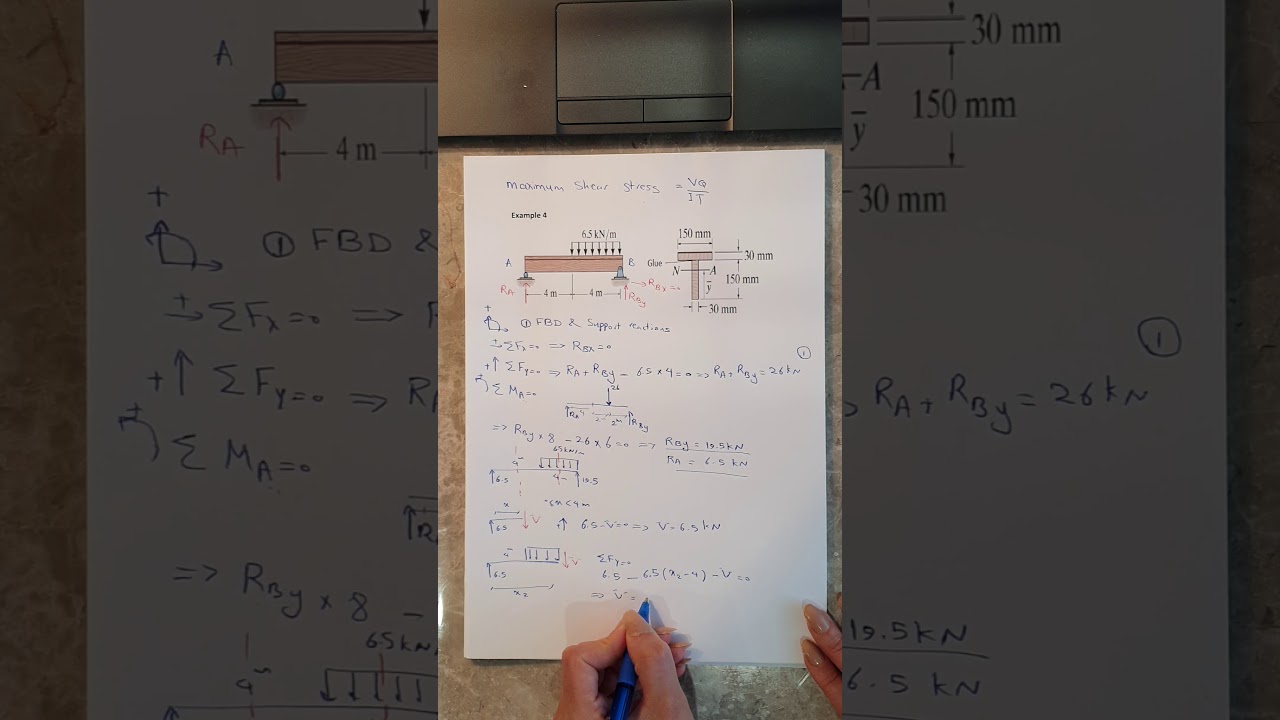 maximum shear stress = VQ/IT
Example 4
6.5 kN/m
150 mm
30 mm
Glue
A
B
N
A
150 mm
ȳ
RBx=0
RA
4 m
4 m
RBy
30 mm
+
① FBD & Support reactions
+→ ΣFx=0 => RBx=0
①
+↑ ΣFy=0 => RA + RBy - 6.5×4=0 => RA + RBy = 26 kN
+ ΣMA=0
26
RA
4
2
2m
RBy
=> RBy × 8 - 26×6=0 => RBy = 19.5 kN
RA = 6.5 kN
6.5 kN/m
4m
6.5
4m
19.5
x
6.5
V
+↑ 6.5-V=0 => V=6.5 kN
4m
V
6.5
x2
ΣFy=0
6.5 - 6.5(x2-4) - V=0
=> V =
A
RA
4 m
+
① FBD &
+→ ΣFx=0 =>
+↑ ΣFy=0 => RA
+ ΣMA=0
=> RBy × 8 -
6.5 kN/
4m
30 mm
A
150 mm
ȳ
30 mm
①
RA + RBy = 26 kN
19.5 kN
6.5 kN